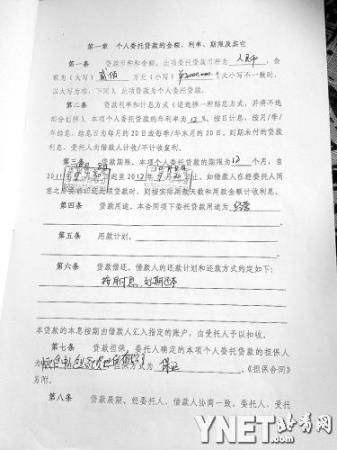 第一章 个人委托贷款的金额、利率、期限及其它
第一条 贷款币种和金额。此项委托贷款币种为 人民币 ,金
额为(大写) 贰佰 万元(小写) ¥2000000. (大小写不一致时,
以大写为准,下同),此项贷款为个人委托贷款。
第二条 贷款利率和计息方式(请选择一种结息方式,并将不选
部分划掉)。本项个人委托贷款的年利率为 12 %,按日计息,按月/季/
年结息,结息日为每月的20日或每季/年末月的20日。到期未付的贷款
利息,受托人向借款人计收/不计收复利。
第三条 贷款期限。本项个人委托贷款的期限为 12 个月,自
20 年 月 日起至20 年 月 日止。如借款人在经委托人同
意之后 贷款时,则据实际用款天数和用款金额计收利息。
第四条 贷款用途。本合同项下委托贷款用途为 经营
第五条 用款计划。
第六条 贷款偿还。借款人的还款计划和还款方式约定如下:
按月付息,到期还本
本贷款的本息按期由借款人汇入指定的账户,由受托人予以扣收。
第七条 贷款担保。委托人确定的本项个人委托贷款的担保人
为 担保方式为 保证 。《担保合同》
另附。
第八条 贷款展期。经委托人、借款人协商一致,委托人、受托
YNET.com 北青网